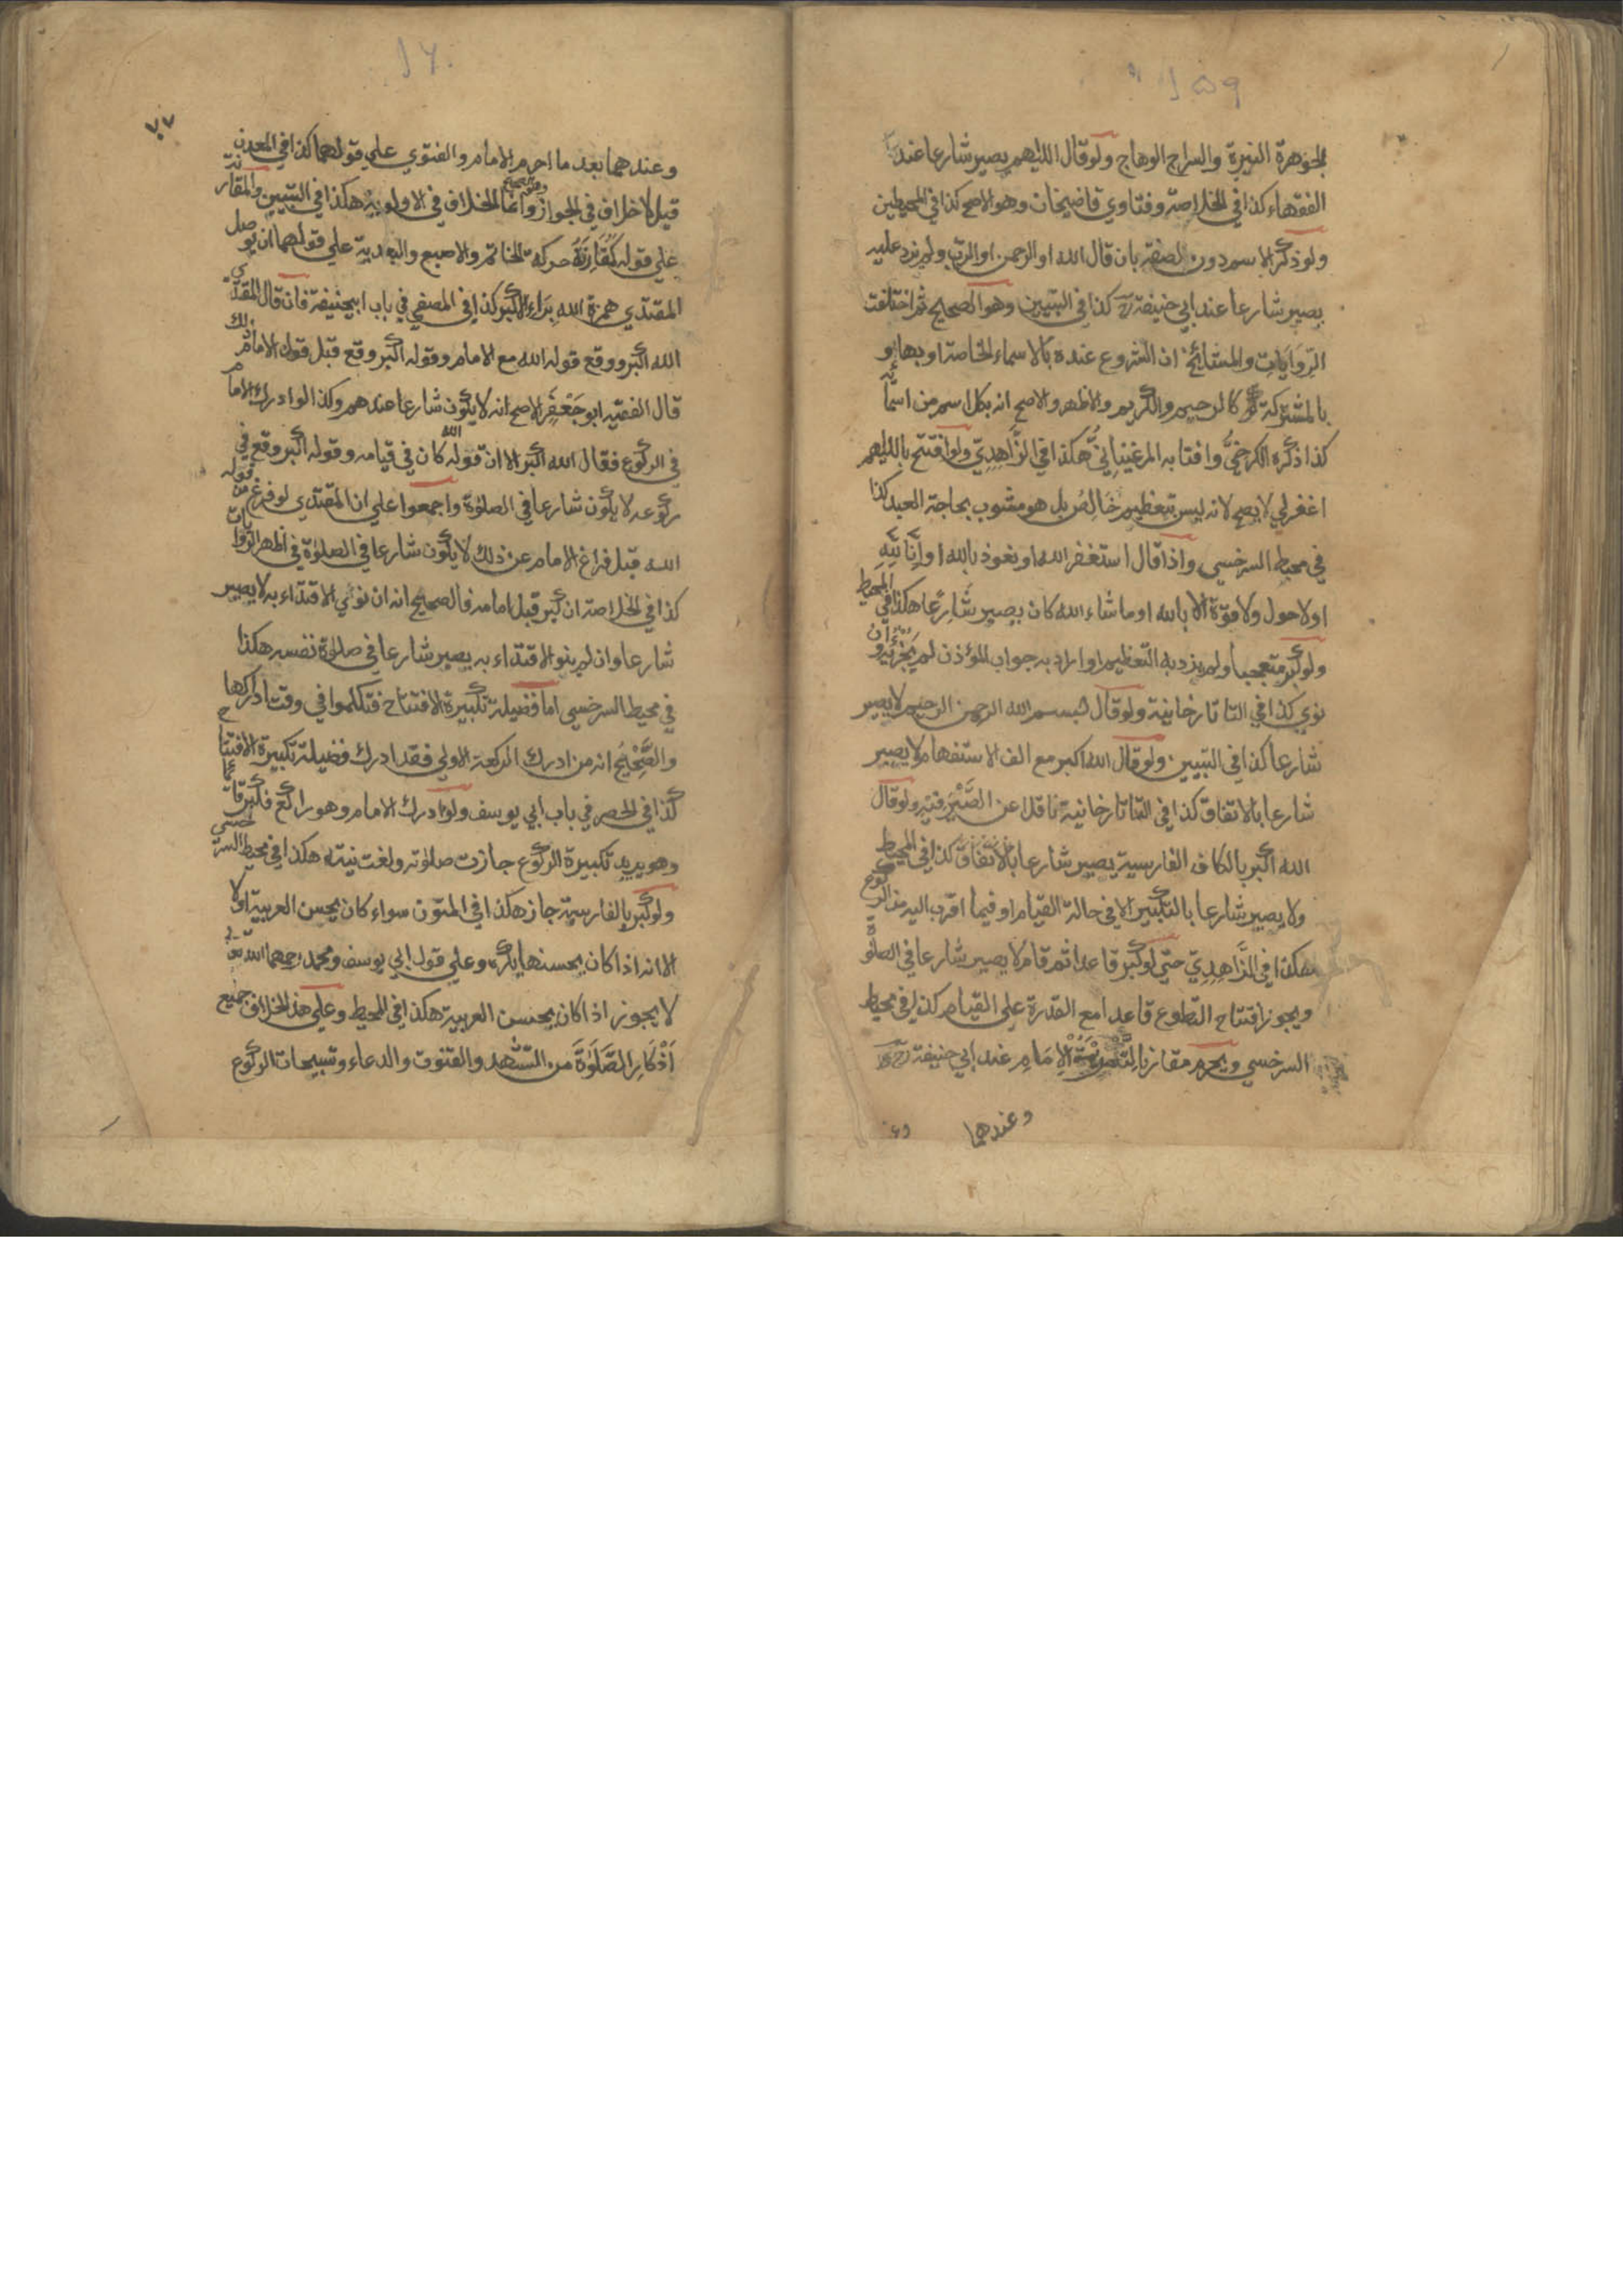 ١٥٩
الجوهرة النيرة والسراج الوهاج ولو قال اللهم يصير شارعا عند
الفقهاء كذا في الخلاصة وفتاوي قاضيخان وهو الاصح كذا في المحيطين
ولو ذكر الاسم دون الصفة بان قال الله او الرحمن او الرب ولم يزد عليه
يصير شارعا عند ابي حنيفة رح كذا في التبيين وهو الصحيح ثم اختلفت
الروايات والمشايخ ان الشروع عنده بالاسماء الخاصة او بها و
بالمشتركة كالرحيم والكريم والاظهر والاصح انه بكل اسم من اسمائه
كذا ذكره الكرخي وافتا به المرغيناني هكذا في الزاهدي ولو افتتح باللهم
اغفر لي لا يصح لانه ليس بتعظيم خالص بل هو مشوب بحاجة العبد كذا
في محيط السرخسي واذا قال استغفر الله او نعوذ بالله او انا لله
او لا حول ولا قوة الا بالله او ما شاء الله كان يصير شارعا هكذا في المحيط
ولو كبر متعجبا ولم يزد به التعظيم او اراد به جواب المؤذن لم يجزئه وان
نوي كذا في التاتارخانية ولو قال بسم الله الرحمن الرحيم لا يصير
شارعا كذا في التبيين ولو قال الله اكبر مع الف الاستفهام لا يصير
شارعا بالاتفاق كذا في التاتارخانية ناقلا عن الصيرفية ولو قال
الله اكبر بالكاف الفارسية يصير شارعا بالاتفاق كذا في المحيط
ولا يصير شارعا بالتكبير الا في حالة القيام او فيما اقرب اليه من الركوع
هكذا في الزاهدي حتي لو كبر قاعدا ثم قام لا يصير شارعا في الصلوة
ويجوز افتتاح التطوع قاعدا مع القدرة علي القيام كذا في محيط
السرخسي ويحرم مقارنا لتحريمة الامام عند ابي حنيفة رح
وعندهما
١٦٠
٧٧
وعندهما بعد ما احرم الامام والفتوي علي قولهما كذا في المعدن
قيل لا خلاف في الجواز وهو الصحيح وانما الخلاف في الاولوية هكذا في التبيين والمقارنة
علي قوله كمقارنة حركة الخاتم والاصبع والبعدية علي قولهما ان يوصل
المقتدي همزة الله براء اكبر كذا في المصفي في باب ابيحنيفة فان قال المقتدي
الله اكبر ووقع قوله الله مع الامام وقوله اكبر وقع قبل قول الامام ذلك
قال الفقيه ابو جعفر الاصح انه لا يكون شارعا عندهم وكذا لو ادرك الامام
في الركوع فقال الله اكبر الا ان قوله الله كان في قيامه وقوله اكبر وقع في
ركوعه لا يكون شارعا في الصلوة واجمعوا علي ان المقتدي لو فرغ من قوله
الله قبل فراغ الامام عن ذلك لا يكون شارعا في الصلوة في اظهر الروايات
كذا في الخلاصة ان كبر قبل امامه فالصحيح انه ان نوي الاقتداء به لا يصير
شارعا وان لم ينو الاقتداء به يصير شارعا في صلوة نفسه هكذا
في محيط السرخسي اما فضيلة تكبيرة الافتتاح فتكلموا في وقت ادراكها
والصحيح انه من ادرك الركعة الاولي فقد ادرك فضيلة تكبيرة الافتتاح
كذا في الحصر في باب ابي يوسف ولو ادرك الامام وهو راكع فكبر قائما
وهو يريد تكبيرة الركوع جازت صلوته ولغت نيته هكذا في محيط السرخسي
ولو كبر بالفارسية جاز هكذا في المتون سواء كان يحسن العربية اولا
الا انه اذا كان يحسنها يكره وعلي قول ابي يوسف ومحمد رحمهما الله تع
لا يجوز اذا كان يحسن العربية هكذا في المحيط وعلي هذا الخلاف جميع
اذكار الصلوة من التشهد والقنوت والدعاء وتسبيحات الركوع